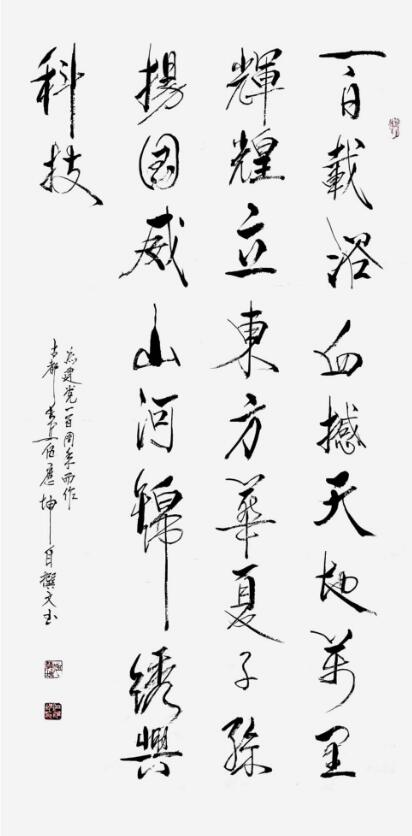 百載浴血撼天地萬里
輝煌立東方華夏子孫
揚國威山河錦繡興
科技
为建党一百周年而作
古都 應坤自撰文书